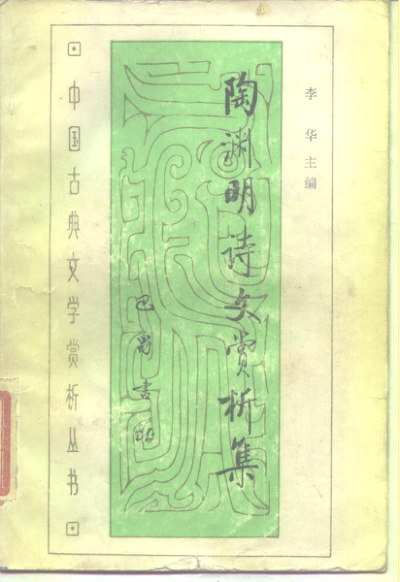 李华主编
陶渊明诗文赏析集
巴蜀书社
中国古典文学赏析丛书